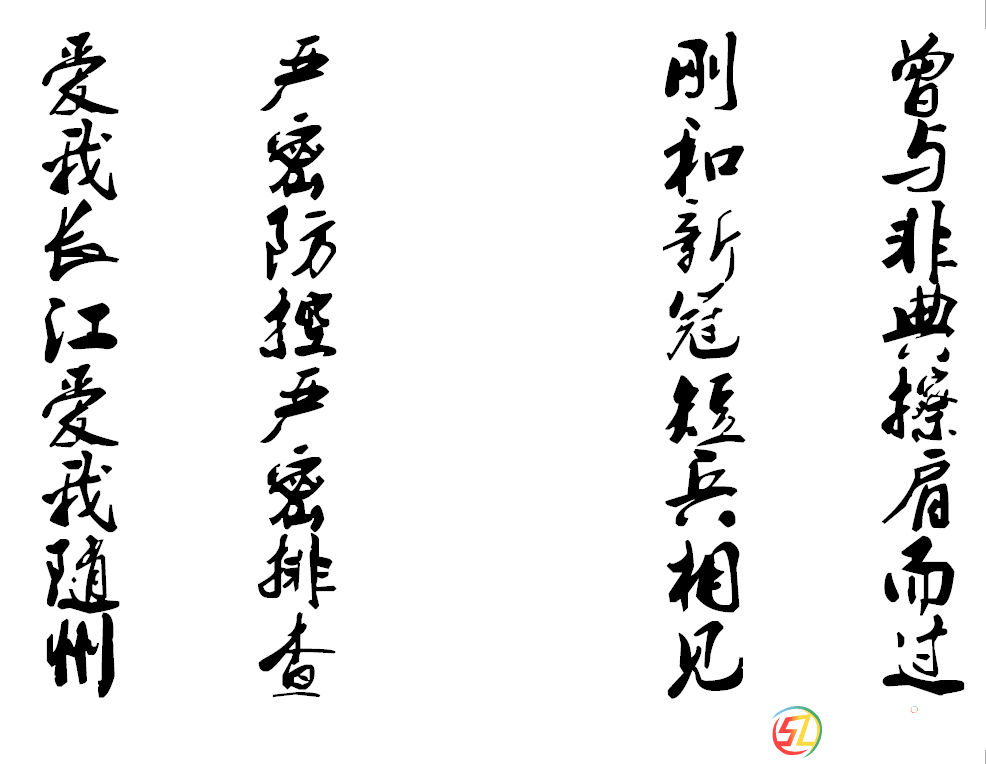 曾与非典擦肩而过
刚和新冠短兵相见
严密防控严密排查
爱我长江爱我随州
SZ